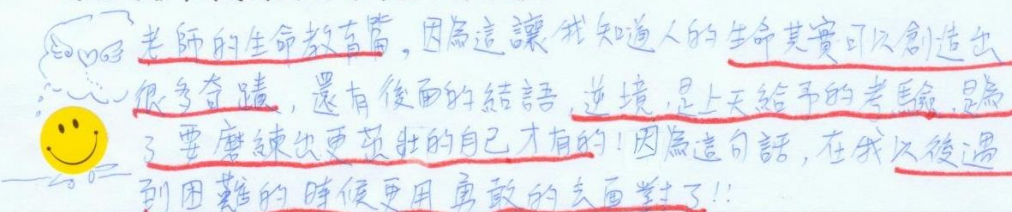 老師的生命教育篇，因為這讓我知道人的生命其實可以創造出
很多奇蹟，還有後面的結語，逆境，是上天給予的考驗，是為
了要磨練出更茁壯的自己才有的！因為這句話，在我以後遇
到困難的時候更用勇敢的去面對了!!